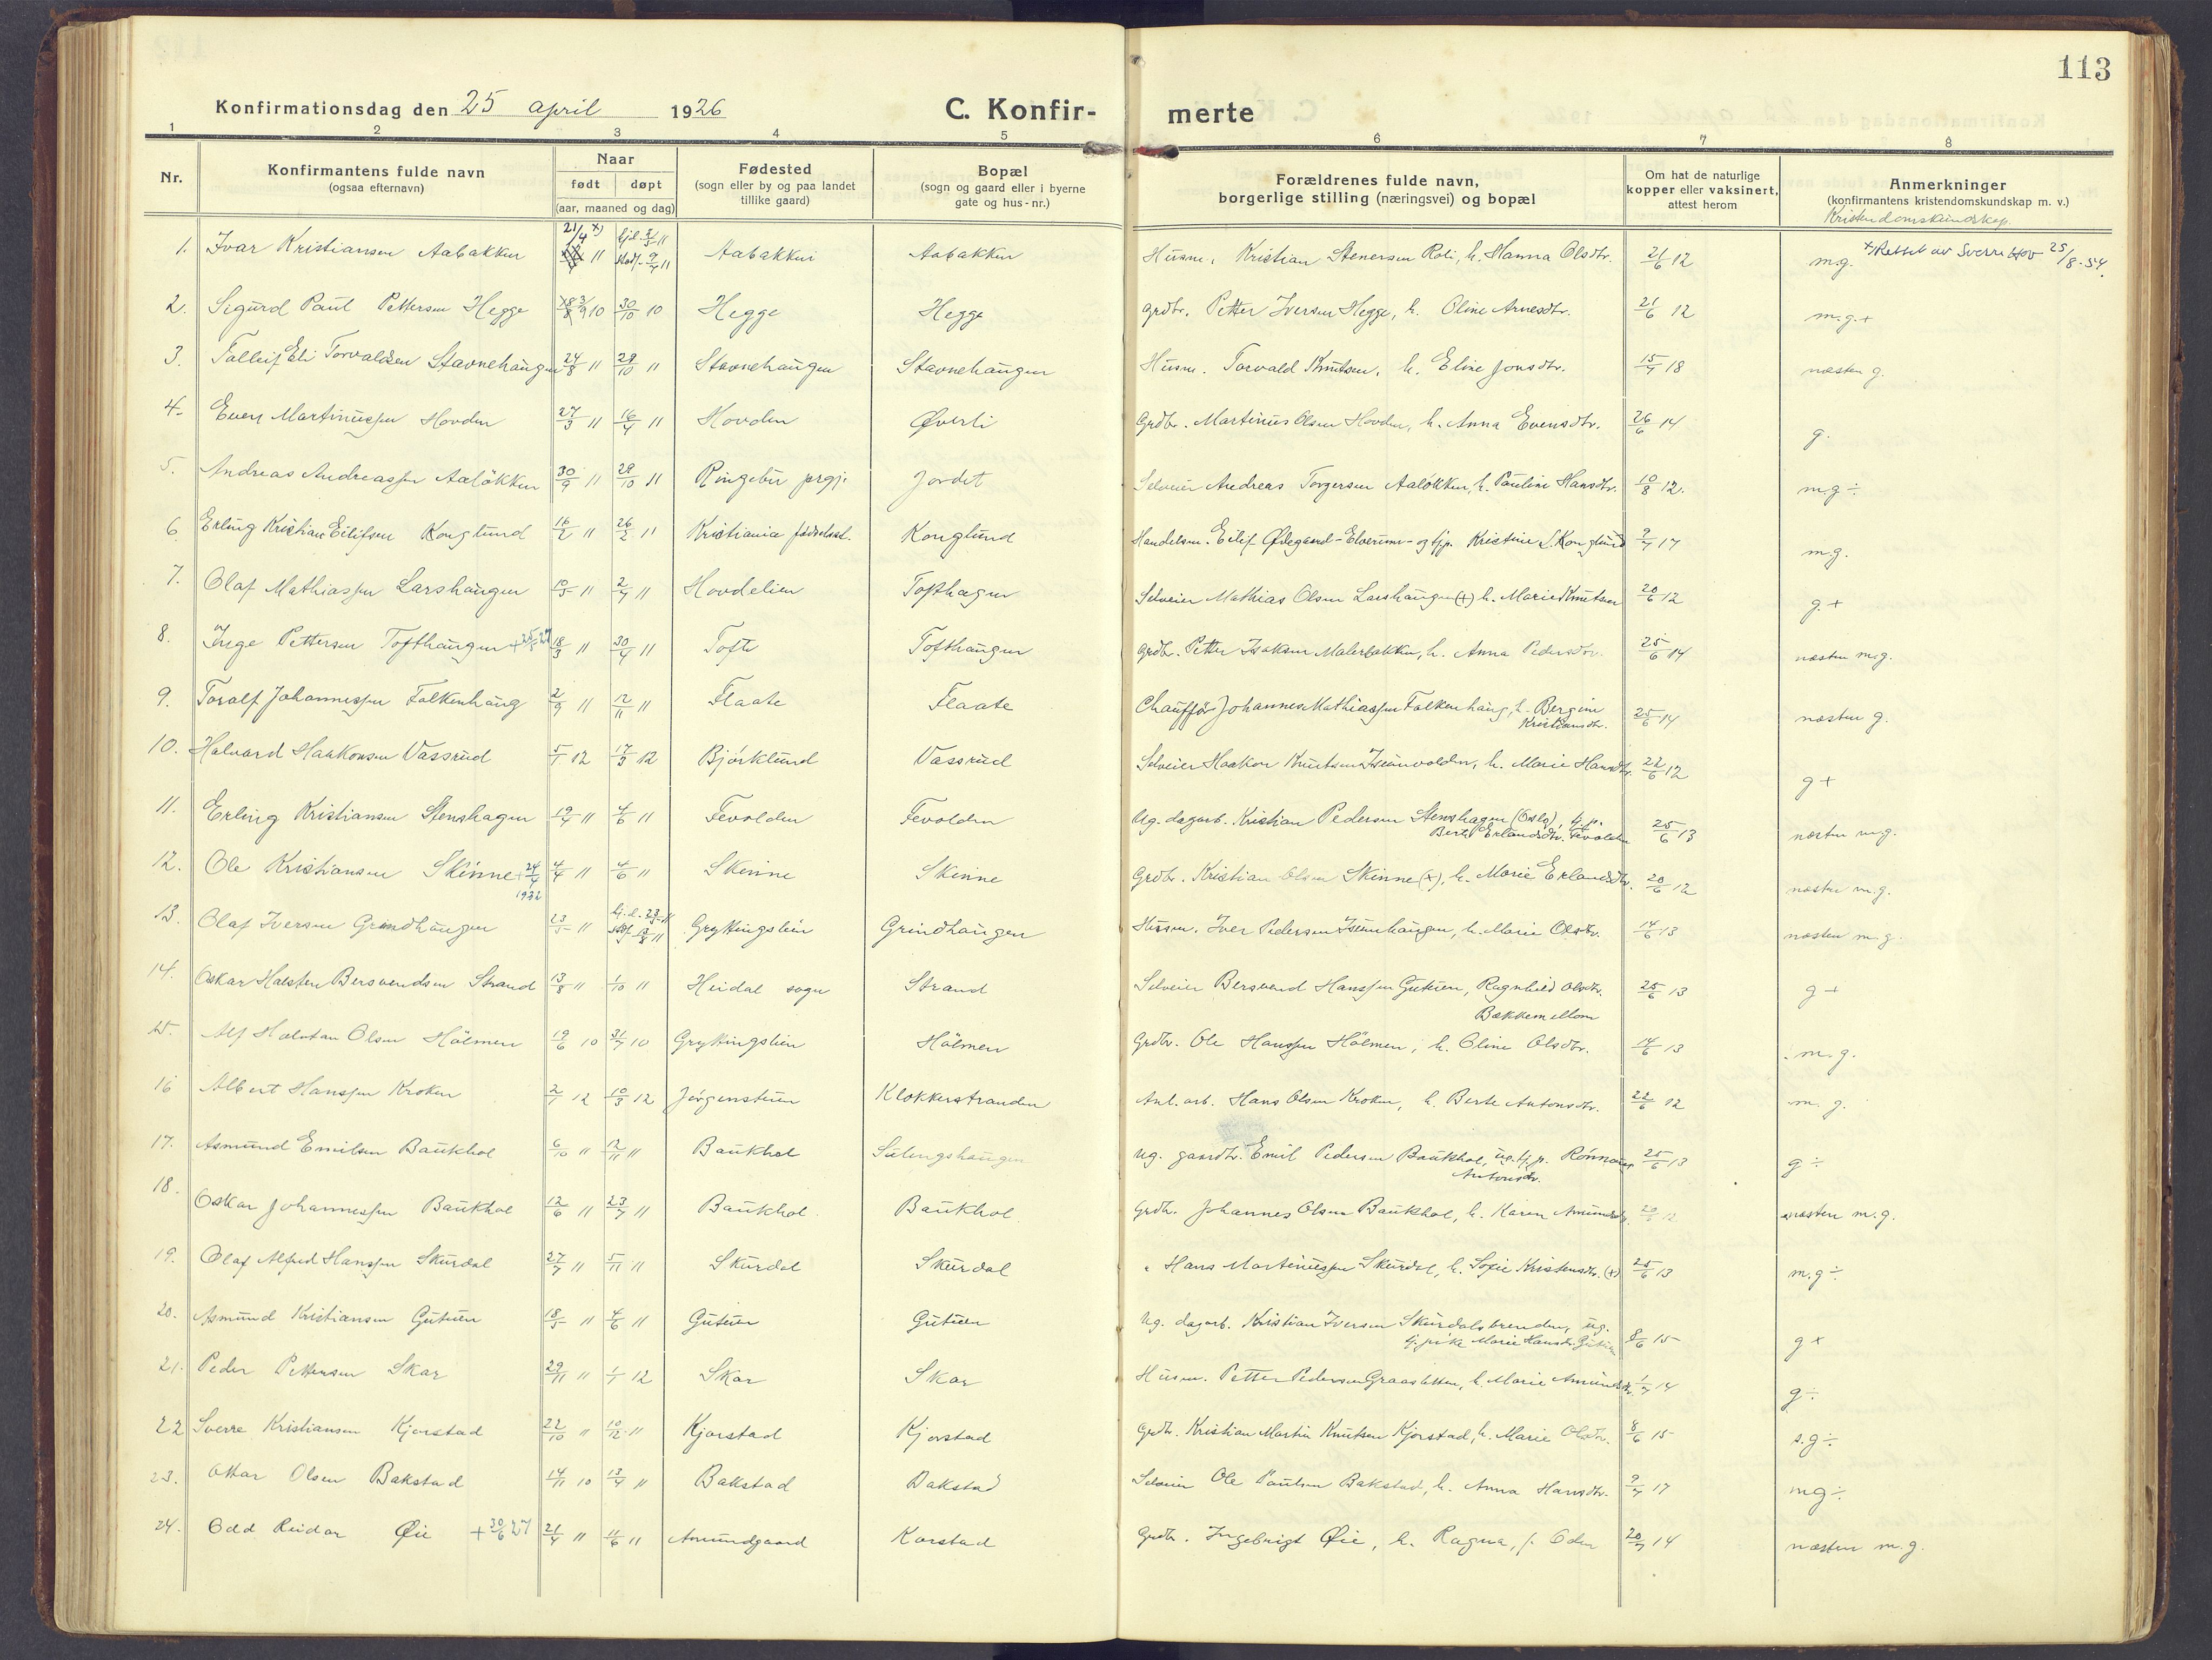 113
Konfirmationsdag den 25 april 1926
C. Konfir-merte
1 2 3 4 5 6 7 8
Nr.
Konfirmantens fulde navn
(ogsaa efternavn)
Naar
født døpt
(aar, maaned og dag)
Fødested
(sogn eller by og paa landet
tillike gaard)
Bopæl
(sogn og gaard eller i byerne
gate og hus-nr.)
Forældrenes fulde navn,
borgerlige stilling (næringsvei) og bopæl
Om hat de naturlige
kopper eller vaksinert,
attest herom
Anmerkninger
(konfirmantens kristendomskundskap m. v.)
Kristendomskundskap.
1. Ivar Kristiansen Aabakken 21/4 x) 11 Aabakken Aabakken Husm. Kristian Stenersen Roli, h. Hanna Olsdtr. 21/6 12 m.g. x) Rettet av Sverre Hov 25/8-54.
2. Sigurd Paul Pettersen Hegge 3/9 10 30/10 10 Hegge Hegge Grdbr. Petter Iversen Hegge, h. Oline Arnesdtr. 21/6 12 m.g.+
3. Talleif Eli Torvaldsen Stavnehaugen 24/8 11 29/10 11 Stavnehaugen Stavnehaugen Husm. Torvald Knutsen, h. Eline Jonsdtr. 15/7 18 næsten g.
4. Even Martinussen Hovden 27/3 11 16/4 11 Hovden Øverli Grdbr. Martinus Olsen Hovden, h. Anna Evensdtr. 26/6 14 g.
5. Andreas Andreassen Aaløkken 30/9 11 29/10 11 Ringebu prgj. Jordet Selveier Andreas Torgersen Aaløkken, h. Pauline Hansdtr. 10/8 12. m.g ÷
6. Erling Kristian Eilifsen Konglund 16/2 11 26/2 11 Kristiania fødselsst. Konglund Handelsm. Eilif Ødegaard - Elverum - og tjp. Kristine S. Konglund 9/7 17 m.g.
7. Olaf Mathiassen Larshaugen 10/3 11 2/4 11 Hovdelien Tofthagen Selveier Mathias Olsen Larshaugen (+) h. Marie Knutsen 20/6 12 g +
8. Inge Pettersen Tofthaugen 18/3 11 30/4 11 Tofte Tofthaugen Grdbr. Petter Isaksen Malerbakken, h. Anna Pedersdtr. 25/6 14 næsten m.g.
9. Toralf Johannessen Falkenhaug 2/9 11 12/11 11 Flaate Flaate Chauffør Johannes Mathiassen Falkenhaug, h. Bergine
Kristiansdtr. 25/6 14 næsten g.
10. Halvard Haakonsen Vassrud 5/1 12 17/3 12 Bjørklund Vassrud Selveier Haakon Knutsen, h. Marie Hansdtr. 22/6 12 g +
11. Erling Kristiansen Stenshagen 19/4 11 4/6 11 Fevolden Fevolden Ug. dagarb. Kristian Pedersen Stenshagen (Oslo), tj. p.
Berte Erlandsdtr. Fevolden 25/6 13 næsten m.g.
12. Ole Kristiansen Skinne + 24/4
1932 4/4 11 4/6 11 Skinne Skinne Grdbr. Kristian Olsen Skinne (+), h. Marie Erlandsdtr. 20/6 12 næsten m.g.
13. Olaf Iversen Grindhaugen 23/5 11 Gryttingslien Grindhaugen Husm. Iver Pedersen, h. Marie Olsdtr. 14/6 13 næsten m.g.
14. Oskar Halsten Bersvendsen Strand 13/8 11 1/10 11 Heidal sogn Strand Selveier Bersvend Hanssen Gutuen, Ragnhild Olsdtr.
Bakkemellom 25/6 13 g +
15. Alf Halvtan Olsen Hølmen 19/6 10 31/7 10 Gryttingslien Hølmen Grdbr. Ole Hanssen Hølmen, h. Oline Olsdtr. 14/6 13 m.g.
16 Albert Hanssen Kroken 2/1 12 10/3 12 Jørgenstuen Klokkerstranden Anl. arb. Hans Olsen Kroken, h. Berte Antonsdtr. 22/6 12 m. g.
17. Asmund Emilsen Baukhol 6/10 11 12/11 11 Baukhol Sulengshaugen Ug. gaardbr. Emil Pedersen Baukhol, ug. tj. p. Rønnaug
Antonsdtr. 25/6 13 g ÷
18. Oskar Johannessen Baukhol 12/6 11 23/7 11 Baukhol Baukhol Grdbr. Johannes Olsen Baukhol, h. Karen Amundsdtr. 20/6 12 næsten m.g.
19. Olaf Alfred Hanssen Skurdal 27/7 11 5/11 11 Skurdal Skurdal " Hans Martinussen Skurdal, h. Sofie Kristensdtr. (+) 25/6 13 m.g ÷
20. Asmund Kristiansen Gutuen 18/5 11 4/6 11 Gutuen Gutuen Ug. dagarb. Kristian Iversen Skurdalsbrenden, ug.
tj. pike Marie Hansdtr. Gutuen 8/6 15 g +
21. Peder Pettersen Skar 29/11 11 1/1 12 Skar Skar Husm. Petter Pedersen Graasletten, h. Marie Amundsdtr. 1/7 14 g ÷
22 Sverre Kristiansen Kjorstad 22/10 11 10/12 11 Kjorstad Kjorstad Grdbr. Kristian Martin Knutsen Kjorstad, h. Marie Olsdtr. 8/6 15 s.g ÷
23. Ottar Olsen Bakstad 14/11 10 13/4 11 Bakstad Bakstad Selveier Ole Paulsen Bakstad, h. Anna Hansdtr. 9/7 17 mg ÷
24. Odd Reidar Øie + 30/6 27 21/4 11 11/6 11 Amundgaard Korstad Grdbr. Ingebrigt Øie, h. Ragna, f. Oden 20/7 14 næsten m.g.